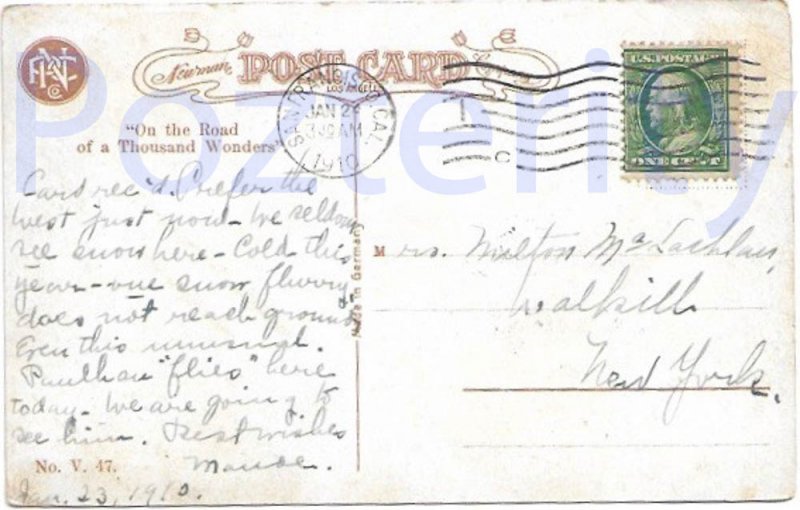 Newman POST CARD
LOS ANGELES
"On the Road
of a Thousand Wonders"
SAN FRANCISCO, CAL.
JAN 24
3 30 AM
1910
U.S. POSTAGE
ONE CENT
Card rec'd. Prefer the
West just now - We seldom
see snow here - Cold this
year - one snow flurry
does not reach ground
Even this unusual.
Paulhan "flies" here
today - We are going to
see him. Best wishes
Maude.
No. V. 47.
Jan. 23, 1910.
Made in Germany
Mrs. Milton McLachlan,
Walkill
New York.
Pozterity